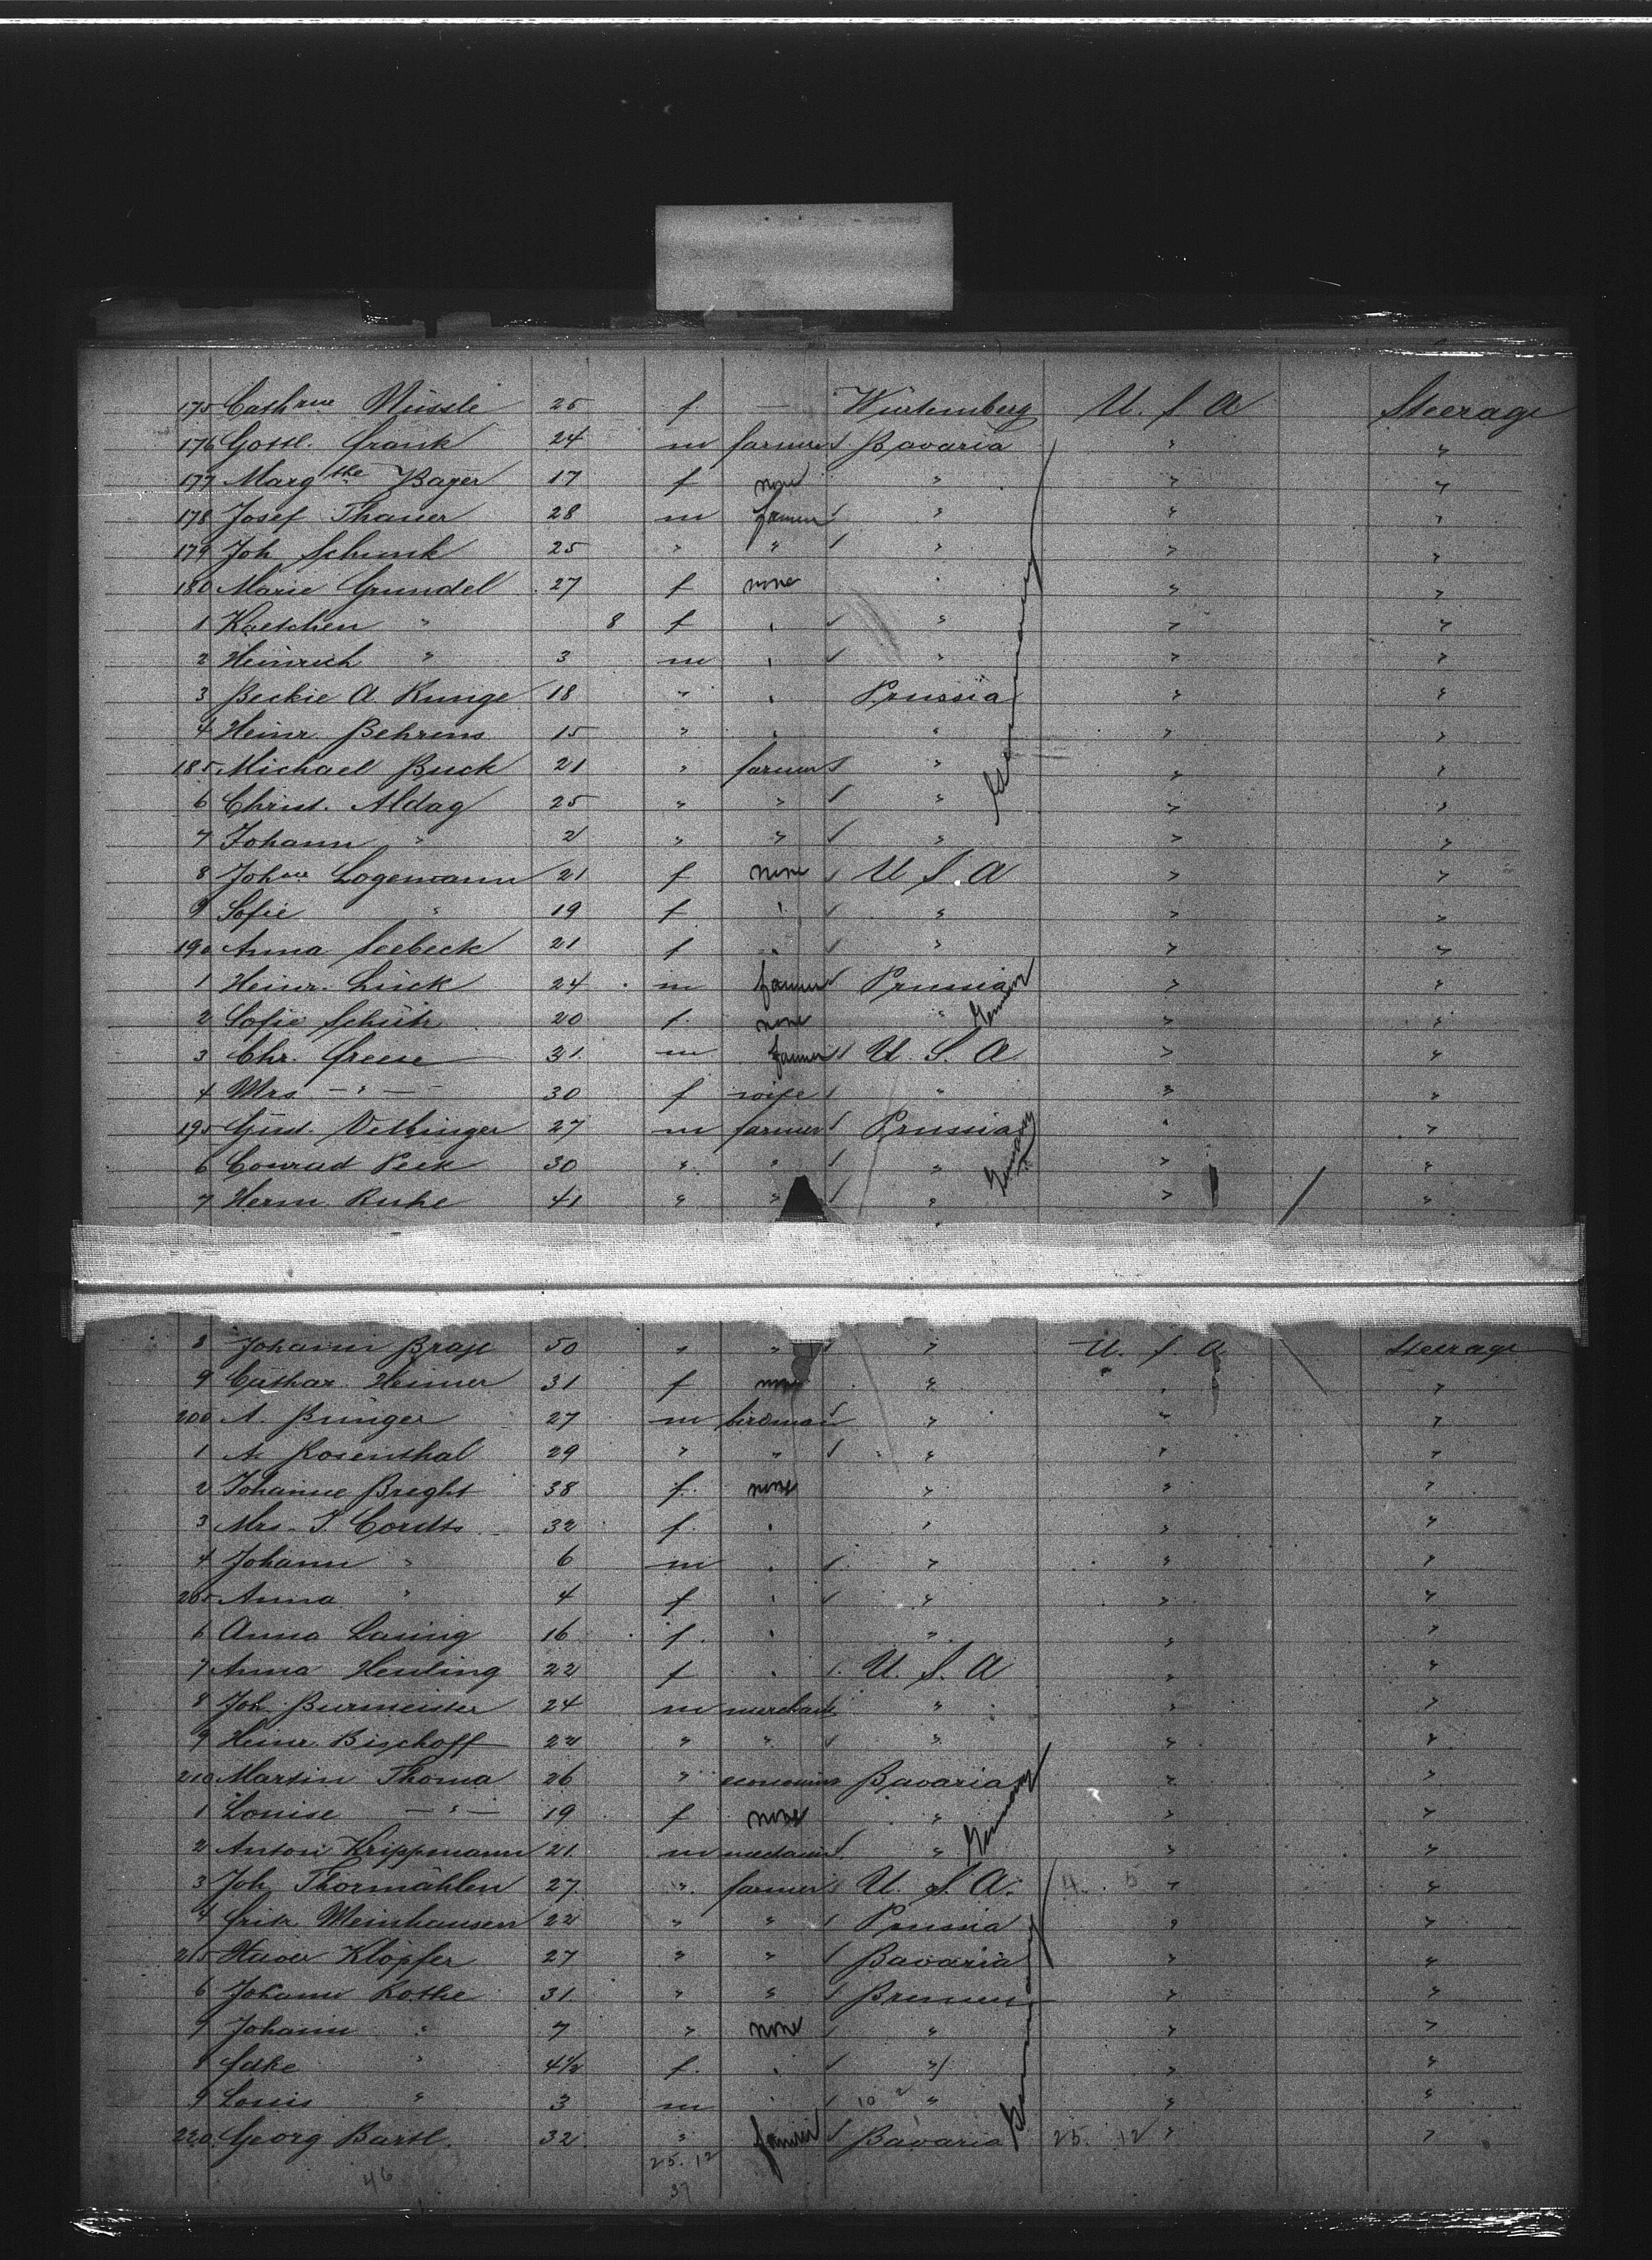 175 Cathrne Nüssle 25 f — Würtemberg U. S. A Steerage
176 Gottl. Frank 24 m farmer Bavaria " "
177 Margthe Bayer 17 f none " " "
178 Josef Thauer 28 m farmer " " "
179 Joh Schunk 25 " " " " "
180 Marie Grundel 27 f none " " "
1 Kaetchen " 8 f " " " "
2 Heinrich " 3 m " " " "
3 Beckie A. Runge 18 " " Prussia " "
4 Heinr. Behrens 15 " " " " "
185 Michael Buck 21 " farmer " " "
6 Christ. Aldag 25 " " " " "
7 Johann " 21 " " " " "
8 Johne Logemann 21 f none U. S. A " "
9 Sofie " 19 f " " " "
190 Anna Seebeck 21 f " " " "
1 Heinr. Lück 24 m farmer Prussia " "
2 Sofie Schütz 20 f. none " " "
3 Chr. Freese 31 m farmer U. S. A " "
4 Mrs — " — 30 f wife " " "
195 Gust. Vettinger 27 m farmer Prussia " "
6 Conrad Peek 30 " " " " "
7 Herm. Ruhe 41 " " " " "
Germany
Germany
Germany
8 Johann 50 " " " U. S. A Steerage
9 Cathar. Heimer 31 f none " " "
200 A. Bünger 27 m birdman " " "
1 A. Rosenthal 29 " " " " "
2 Johanne Breght 38 f. none " " "
3 Mrs. J. Cordts 32 f. " " " "
4 Johann " 6 m " " " "
205 Anna " 4 f " " " "
6 Anna Lasing 16 f. " " " "
7 Anna Henling 22 f " U. S. A " "
8 Joh. Burmeister 24 m merchant " " "
9 Heinr. Bischoff 22 " " " " "
210 Martin Thoma 26 " Bavaria " "
1 Louise — " — 19 f none " " "
2 Anton Krippmann 21 m " " "
3 Joh. Thormählen 27 " farmer U. S. A. " "
4 Fritz Meinshausen 22 " " Prussia " "
215 Xaver Klöpfer 27 " " Bavaria " "
6 Johann Rothe 31 " " Bremen " "
7 Johann " 7 " none " " "
8 Edke " 4½ f. " " " "
9 Louis " 3 m " 10 " " "
220 Georg Bartl. 32 " farmer Bavaria 25. 12 " "
Germany
Germany
46 25. 12
37